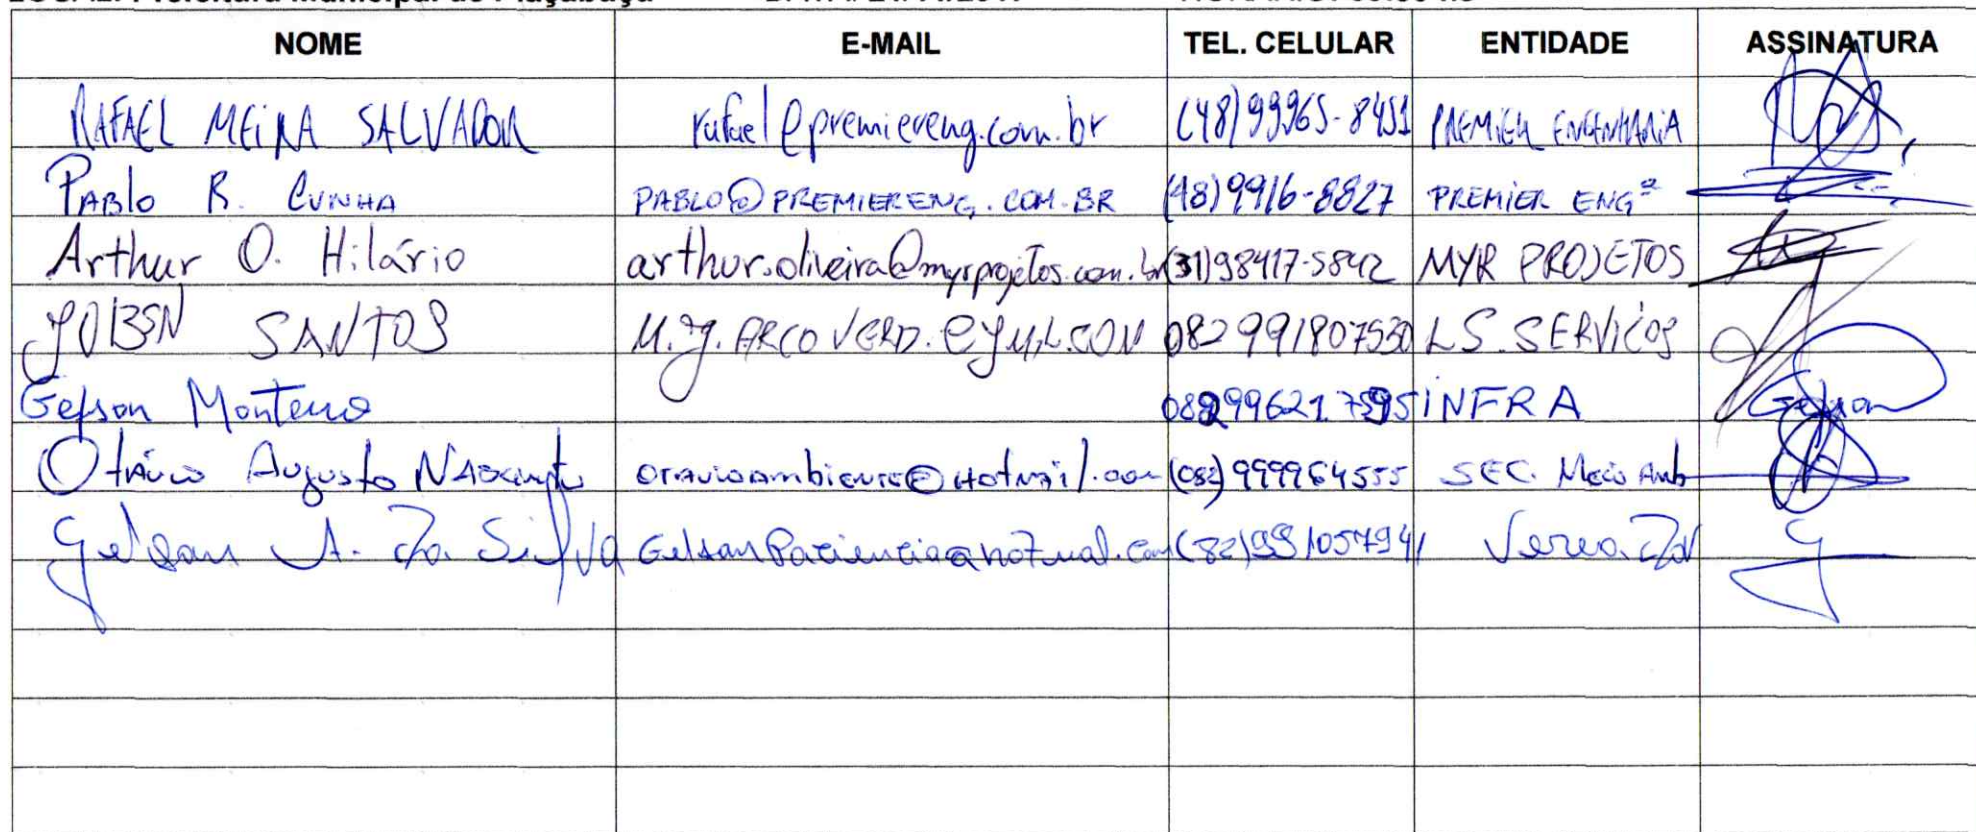 NOME E-MAIL TEL. CELULAR ENTIDADE ASSINATURA
RAFAEL MEIRA SALVADOR rafael@premiereng.com.br (48)99965-8451 PREMIER ENGENHARIA
PABLO R. CUNHA PABLO@PREMIERENG.COM.BR (48)9916-8827 PREMIER ENGª
Arthur O. Hilário arthur.oliveira@myrprojetos.com.br (31)98417-5842 MYR PROJETOS
SANTOS 082991807530 LS SERVIÇOS
Gelson Monteiro INFRA Gelson
Otávio Augusto Nascimento otavioambiente@hotmail.com (082)999964555 SEC. Meio Amb
Gelson A. da Silva (82)991057941 Vereador